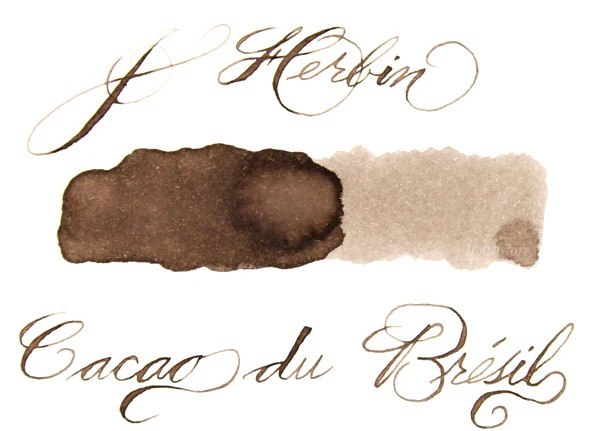 J Herbin
Cacao du Brésil